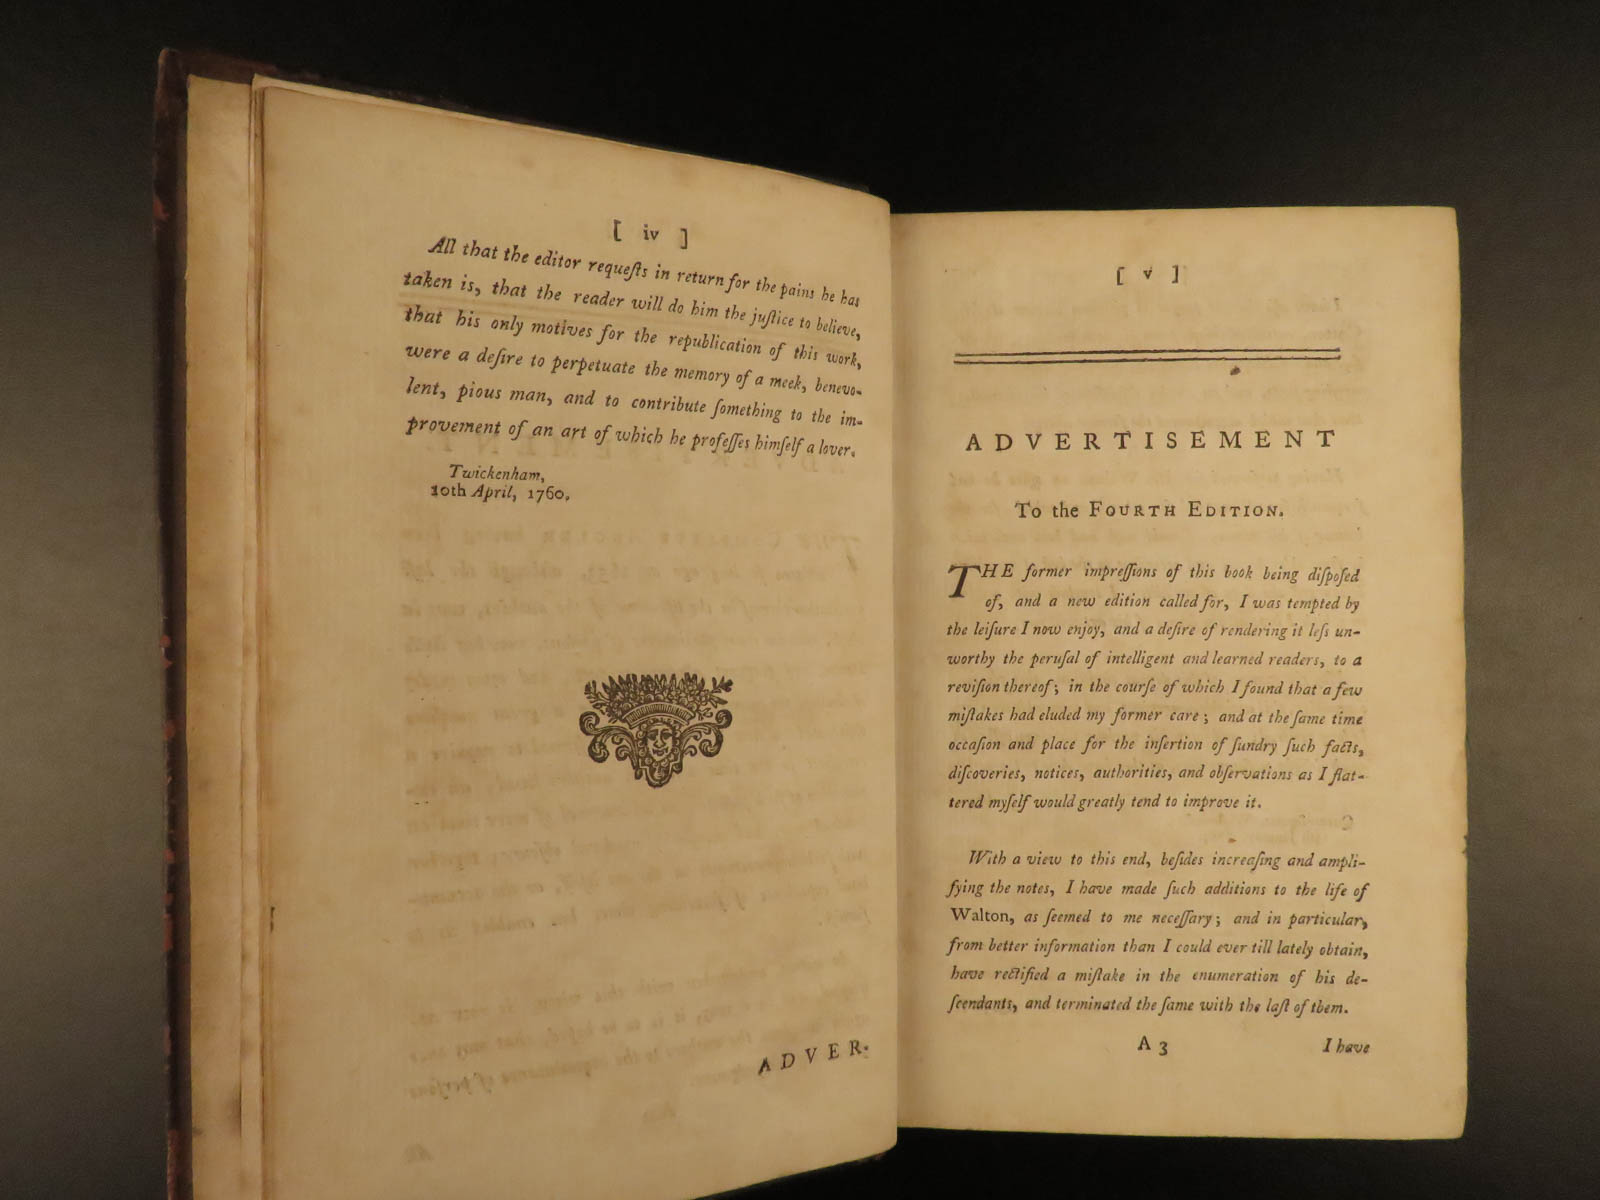 [ iv ]
All that the editor requeſts in return for the pains he has
taken is, that the reader will do him the juſtice to believe,
that his only motives for the republication of this work,
were a deſire to perpetuate the memory of a meek, benevo-
lent, pious man, and to contribute ſomething to the im-
provement of an art of which he profeſſes himſelf a lover.
Twickenham,
10th April, 1760.
ADVER-
[ v ]
ADVERTISEMENT
To the FOURTH EDITION.
THE former impreſſions of this book being diſpoſed
of, and a new edition called for, I was tempted by
the leiſure I now enjoy, and a deſire of rendering it leſs un-
worthy the peruſal of intelligent and learned readers, to a
reviſion thereof; in the courſe of which I found that a few
miſtakes had eluded my former care; and at the ſame time
occaſion and place for the inſertion of ſundry ſuch facts,
diſcoveries, notices, authorities, and obſervations as I flat-
tered myſelf would greatly tend to improve it.
With a view to this end, beſides increaſing and ampli-
fying the notes, I have made ſuch additions to the life of
Walton, as ſeemed to me neceſſary; and in particular,
from better information than I could ever till lately obtain,
have rectified a miſtake in the enumeration of his de-
ſcendants, and terminated the ſame with the laſt of them.
A 3
I have